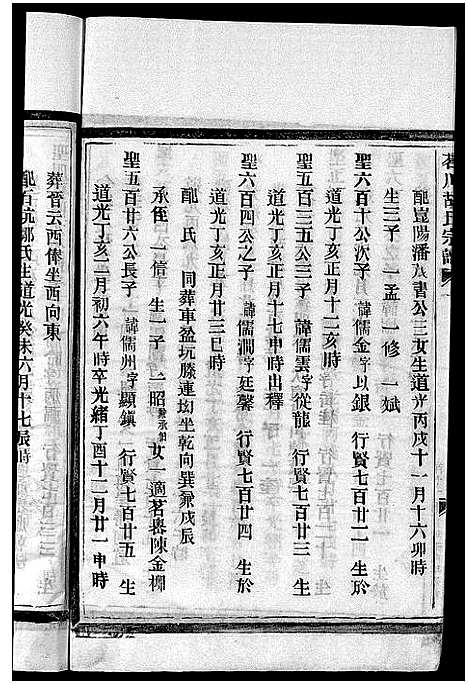 配豈陽潘茂書公三女生道光丙戌十一月十六卯時
生三子 一孟 一修 一斌
聖六百十公次子 諱儒金字以銀 行賢七百廿二 生於
道光丁亥正月十二亥時
聖五百三五公三子 諱儒雲字從龍 行賢七百廿三 生
道光丁亥正月十七申時出繼
聖六百四公之子 諱儒澗字廷馨 行賢七百廿四 生於
道光丁亥正月廿三巳時
配 氏 同葬車盆坑滕連坳坐乾向巽兼戌辰
承侄 一信 生一子 一昭 兼承 女一 適茗嶴陳金柳
聖五百廿六公長子 諱儒州字顯鎮 行賢七百廿五 生
道光丁亥二月初六午時卒光緒丁酉十二月廿一申時
葬晉云西俸坐西向東
配石坑鄭氏生道光癸未六月十七辰時